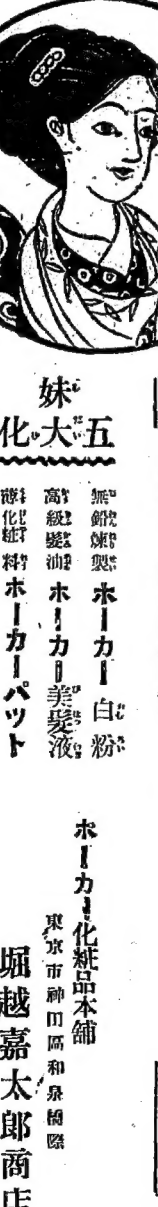 妹
五大化
無鉛煉製 ホーカー白粉
高級髪油 ホーカー美髪液
化粧料 ホーカーパット
ホーカー化粧品本舗
東京市神田區和泉橋際
堀越嘉太郎商店